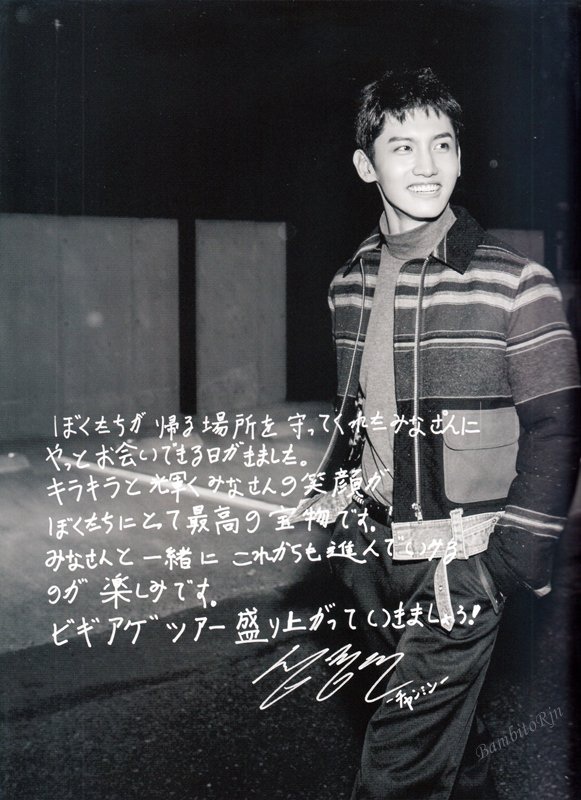 ぼくたちが帰る場所を守ってくれたみなさんに
やっとお会いできる日がきました。
キラキラと輝くみなさんの笑顔が
ぼくたちにとって最高の宝物です。
みなさんと一緒にこれからも進んでいける
のが楽しみです。
ビギアゲツアー盛り上がっていきましょう!
-チャンミン-
BambitoRjn